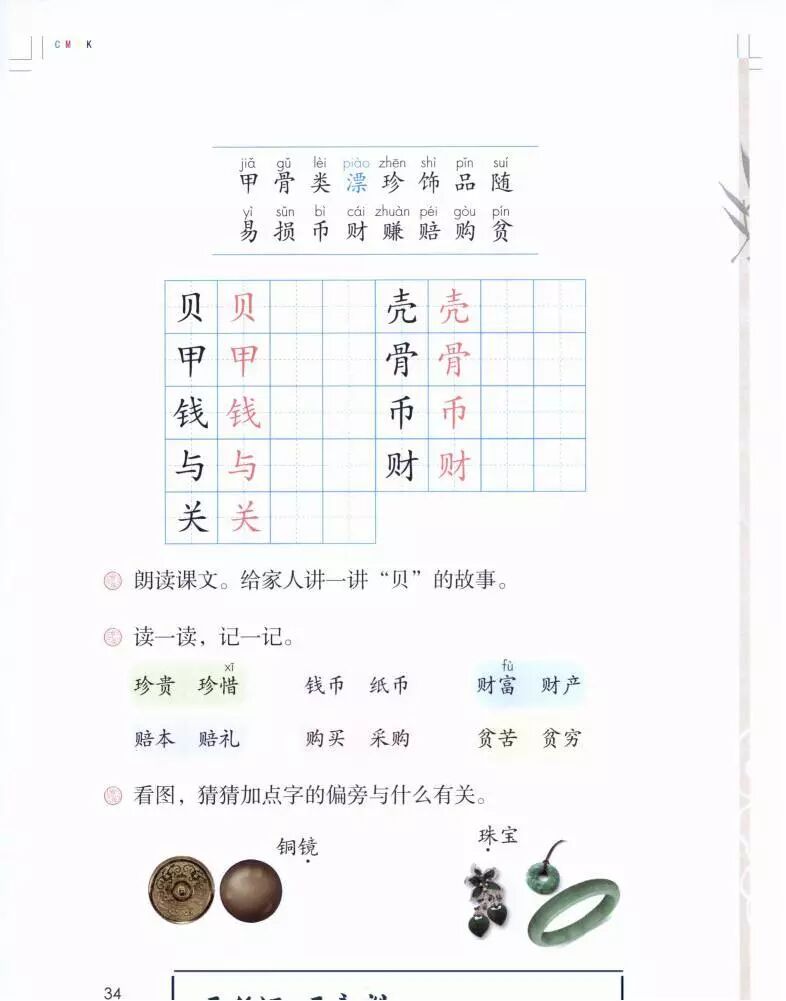 C M Y K
jiǎ gǔ lèi piào zhēn shì pǐn suí
甲 骨 类 漂 珍 饰 品 随
yì sǔn bì cái zhuàn péi gòu pín
易 损 币 财 赚 赔 购 贫
贝 贝 壳 壳
甲 甲 骨 骨
钱 钱 币 币
与 与 财 财
关 关
朗读课文。给家人讲一讲“贝”的故事。
读一读，记一记。
xī fù
珍贵 珍惜 钱币 纸币 财富 财产
赔本 赔礼 购买 采购 贫苦 贫穷
看图，猜猜加点字的偏旁与什么有关。
铜镜 珠宝
34